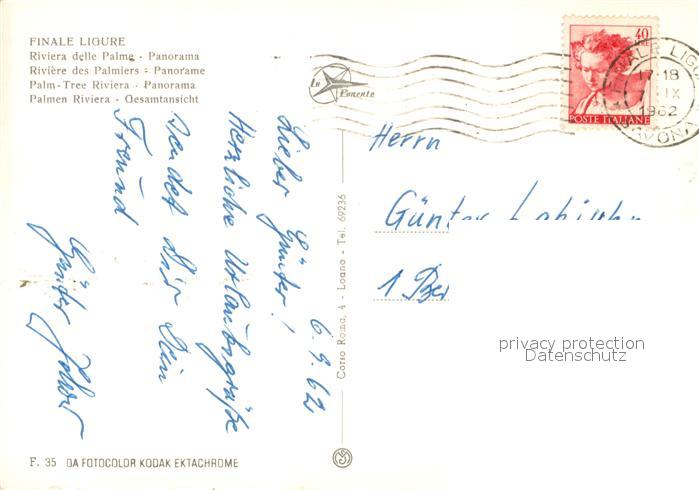 FINALE LIGURE
Riviera delle Palme - Panorama
Rivière des Palmiers - Panorame
Palm-Tree Riviera - Panorama
Palmen Riviera - Gesamtansicht
La Ponente
40
POSTE ITALIANE
FINALE LIGURE
17-18
IX
1962
(SAVONA)
6.9.62
Lieber Günter!
Herzliche Urlaubsgrüße
sendet Dir Dein
Freund
Günter
Herrn
Günter
1 Ber
Corso Roma, 4 - Loano - Tel. 69236
privacy protection
Datenschutz
F. 35 DA FOTOCOLOR KODAK EKTACHROME